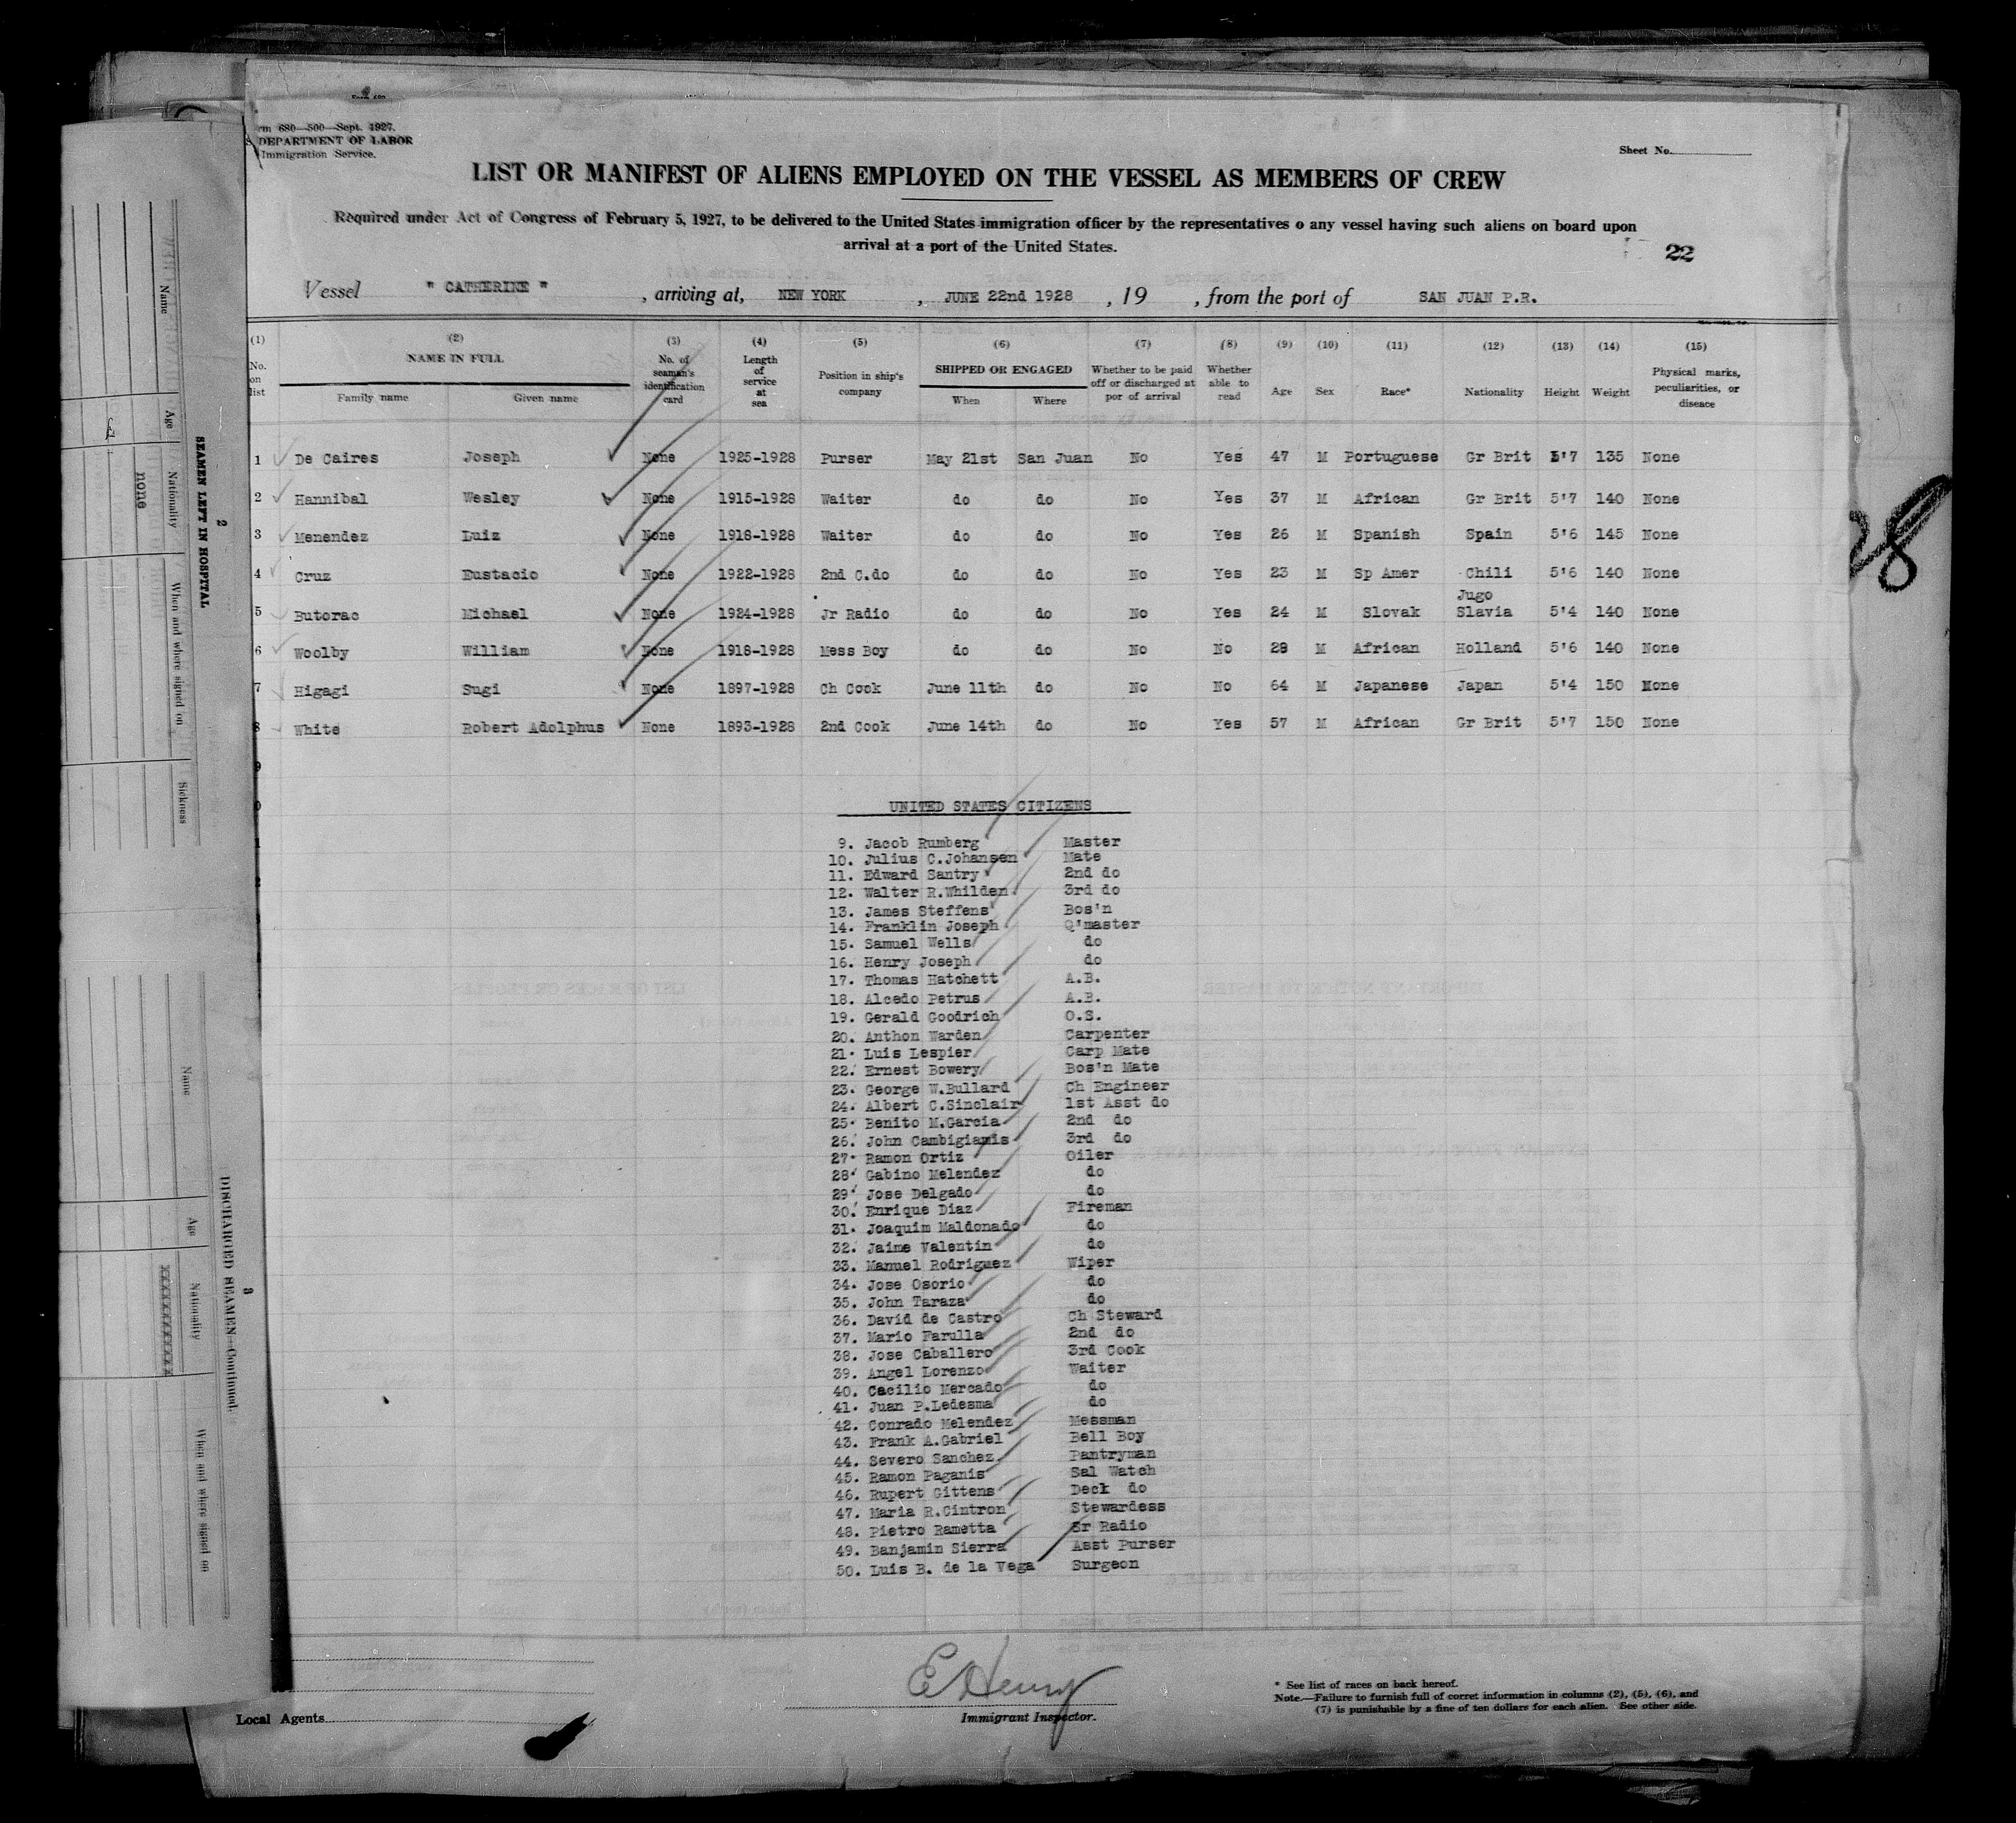 rm 680—500—Sept. 1927.
DEPARTMENT OF LABOR
Immigration Service.
Sheet No.
LIST OR MANIFEST OF ALIENS EMPLOYED ON THE VESSEL AS MEMBERS OF CREW
Required under Act of Congress of February 5, 1927, to be delivered to the United States immigration officer by the representatives o any vessel having such aliens on board upon
arrival at a port of the United States.
22
Vessel " CATHERINE " , arriving at, NEW YORK , JUNE 22nd 1928 , 19 , from the port of SAN JUAN P.R.
(1) (2) (3) (4) (5) (6) (7) (8) (9) (10) (11) (12) (13) (14) (15)
No. on list NAME IN FULL Family name Given name No. of seaman's identification card Length of service at sea Position in ship's company SHIPPED OR ENGAGED When Where Whether to be paid off or discharged at por of arrival Whether able to read Age Sex Race* Nationality Height Weight Physical marks, peculiarities, or diseace
1 De Caires Joseph None 1925-1928 Purser May 21st San Juan No Yes 47 M Portuguese Gr Brit 5'7 135 None
2 Hannibal Wesley None 1915-1928 Waiter do do No Yes 37 M African Gr Brit 5'7 140 None
3 Menendez Luiz None 1918-1928 Waiter do do No Yes 26 M Spanish Spain 5'6 145 None
4 Cruz Eustacio None 1922-1928 2nd C.do do do No Yes 23 M Sp Amer Chili 5'6 140 None
5 Butorac Michael None 1924-1928 Jr Radio do do No Yes 24 M Slovak Jugo Slavia 5'4 140 None
6 Woolby William None 1918-1928 Mess Boy do do No No 28 M African Holland 5'6 140 None
7 Higagi Sugi None 1897-1928 Ch Cook June 11th do No No 64 M Japanese Japan 5'4 150 None
8 White Robert Adolphus None 1893-1928 2nd Cook June 14th do No Yes 57 M African Gr Brit 5'7 150 None
9
0
1
2
28
UNITED STATES CITIZENS
9. Jacob Rumberg Master
10. Julius C.Johansen Mate
11. Edward Santry 2nd do
12. Walter R.Whilden 3rd do
13. James Steffens Bos'n
14. Franklin Joseph Q'master
15. Samuel Wells do
16. Henry Joseph do
17. Thomas Hatchett A.B.
18. Alcedo Petrus A.B.
19. Gerald Goodrich O.S.
20. Anthon Warden Carpenter
21. Luis Lespier Carp Mate
22. Ernest Bowery Bos'n Mate
23. George W.Bullard Ch Engineer
24. Albert C.Sinclair 1st Asst do
25. Benito M.Garcia 2nd do
26. John Cambigianis 3rd do
27. Ramon Ortiz Oiler
28. Gabino Melendez do
29. Jose Delgado do
30. Enrique Diaz Fireman
31. Joaquim Maldonado do
32. Jaime Valentin do
33. Manuel Rodriguez Wiper
34. Jose Osorio do
35. John Taraza do
36. David de Castro Ch Steward
37. Mario Farulla 2nd do
38. Jose Caballero 3rd Cook
39. Angel Lorenzo Waiter
40. Cacilio Mercado do
41. Juan P.Ledesma do
42. Conrado Melendez Messman
43. Frank A.Gabriel Bell Boy
44. Severo Sanchez Pantryman
45. Ramon Paganis Sal Watch
46. Rupert Gittens Deck do
47. Maria R.Cintron Stewardess
48. Pietro Rametta Sr Radio
49. Banjamin Sierra Asst Purser
50. Luis B. de la Vega Surgeon
E Henry
Immigrant Inspector.
Local Agents
* See list of races on back hereof.
Note.—Failure to furnish full of corret information in columns (2), (5), (6), and
(7) is punishable by a fine of ten dollars for each alien. See other side.
2
SEAMEN LEFT IN HOSPITAL
Name Age Nationality When and where signed on Sickness
none
3
DISCHARGED SEAMEN—Continued.
Name Age Nationality When and where signed on
XXXXXXXXXXXX